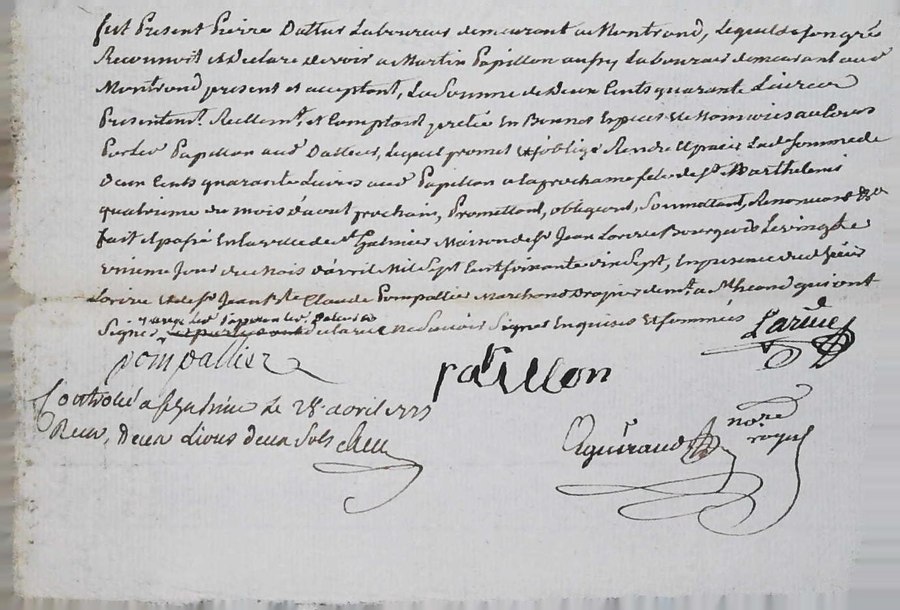 fut Present Pierre Dattus Laboureur demeurant a Montrond, Lequel de son gré
Reconnoit et Declare devoir a Martin Papillon aussy Laboureur demeurant aud
Montrond present et acceptant, La Somme de Deux Cents quarante Livres
Presentemt. Reellemt. et Comptant pretée En Bonnes Espices et Monnoies au Cours
Par led Papillon aud Dattus, Lequel promet et s'oblige Rendre et paier Lad. Somme de
Deux Cents quarante Livres aud Papillon a la prochaine fete de St. Barthelemi
quatrieme du mois d'aout prochain, Promettant, obligeant, Soumettant, Renonceant &a
fait et passé En la ville de St. Galmier Maison de Sr Jean Larive Bourgeois Le vingt
unieme Jour du Mois d'avril Mil Sept Cent soixante dix Sept, En presence dud Sieur
Larive et de Sr Jean Claude Pompallier Marchand Drapier demt. a St. qui ont
Signé avec led Papillon led Dattus a declaré ne Savoir Signer Enquis et Sommés
Larive
pompallier
papillon
Controlé a St Galmier Le 28 avril 1777
Recu, Deux Livres deux Sols
Aguiraud nore
royal